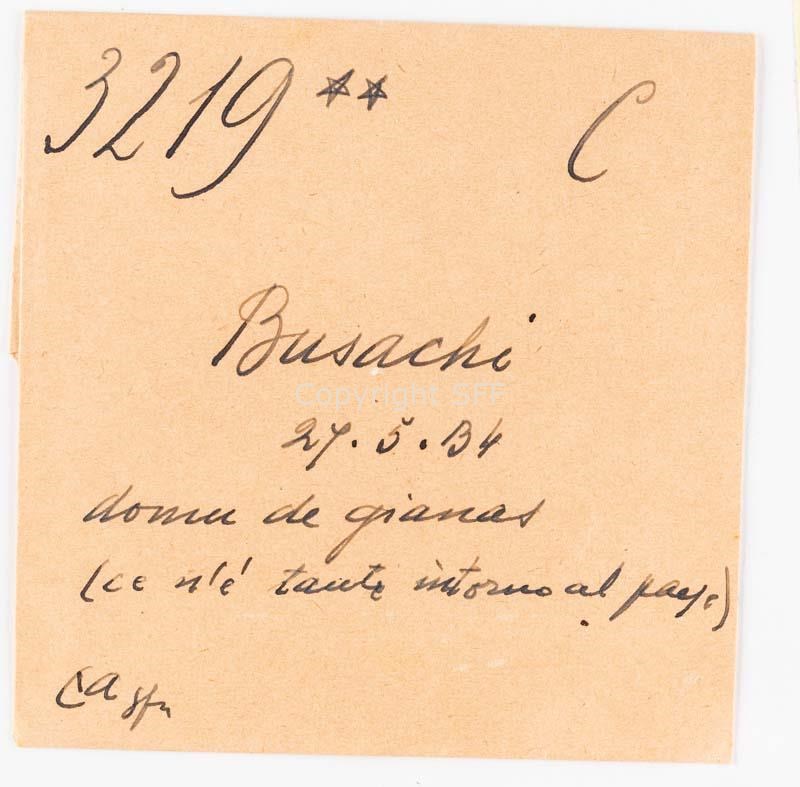 3219 ** C
Busachi
Copyright SFF
27.5.34
domu de gianas
(ce n'è tante intorno al paese)